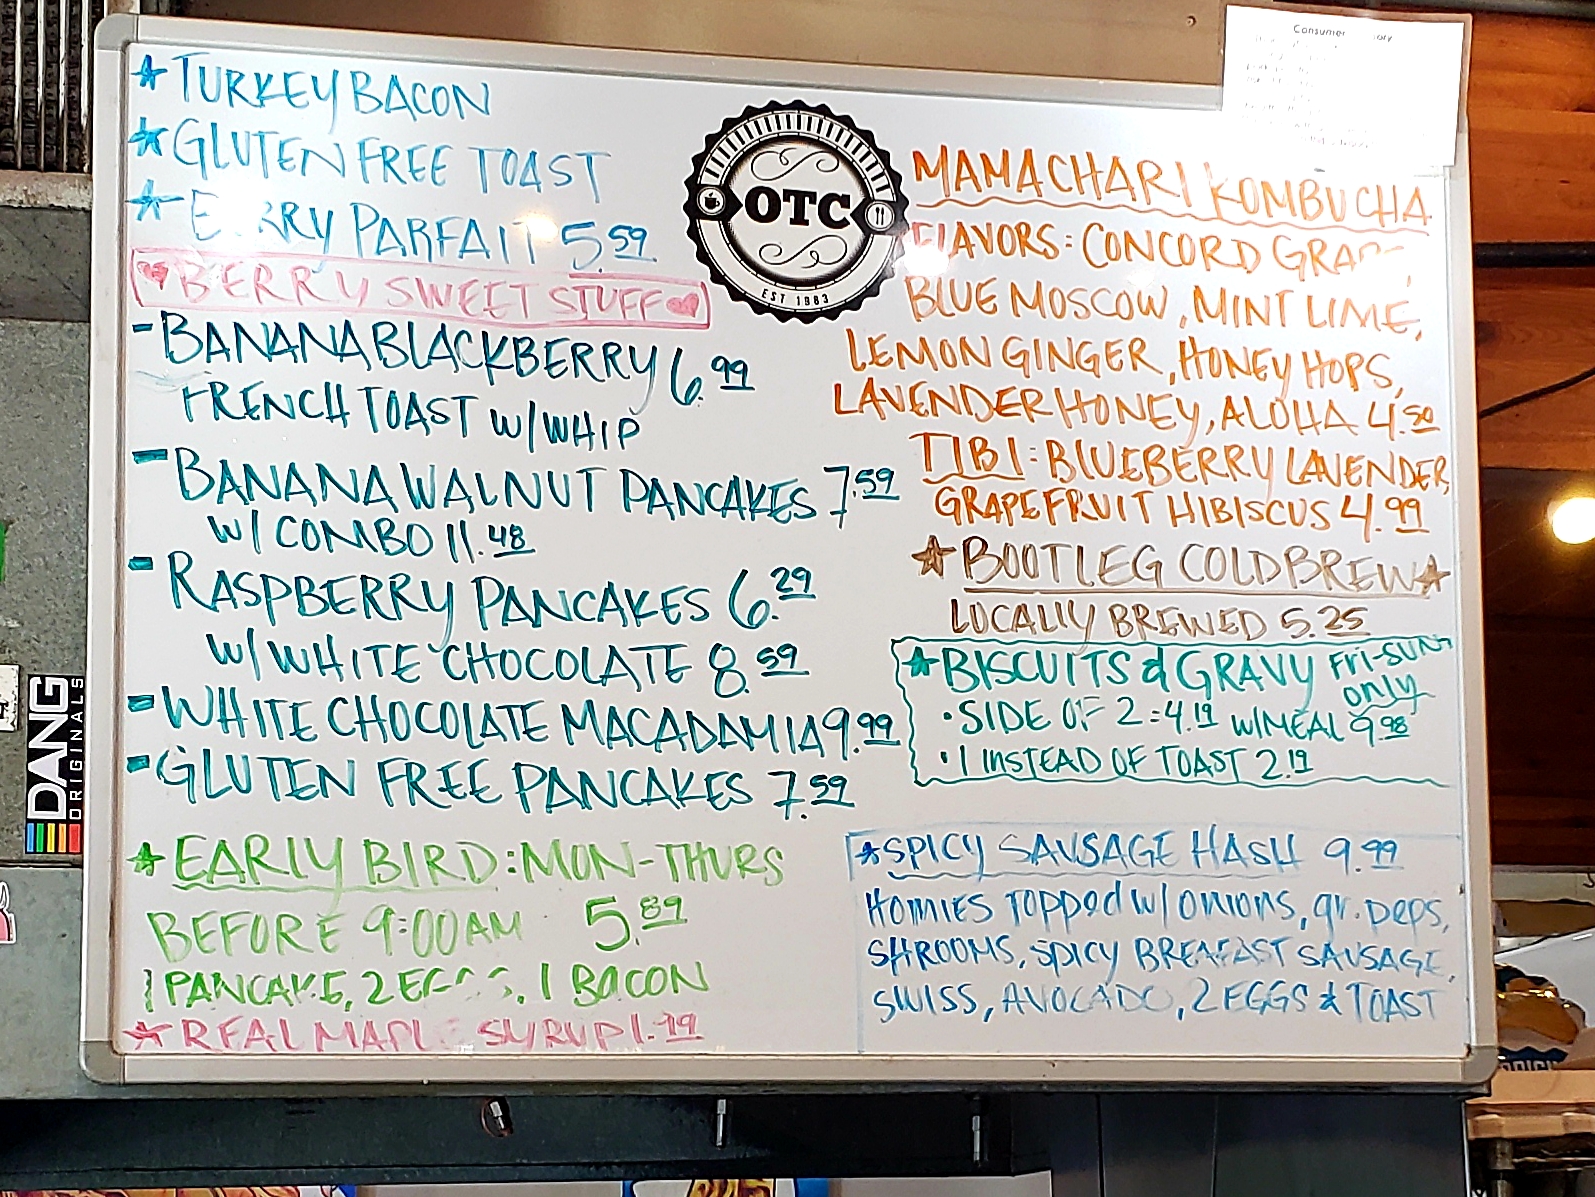 ★ TURKEY BACON
★ GLUTEN FREE TOAST
★ PARFAIT 5.59
♥ BERRY SWEET STUFF ♥
- BANANA BLACKBERRY 6.99
FRENCH TOAST W/WHIP
- BANANA WALNUT PANCAKES 7.59
W/ COMBO 11.48
- RASPBERRY PANCAKES 6.29
W/WHITE CHOCOLATE 8.59
- WHITE CHOCOLATE MACADAMIA 9.99
- GLUTEN FREE PANCAKES 7.59
★ EARLY BIRD: MON-THURS
BEFORE 9:00AM 5.89
1 PANCAKE, 2 EGGS, 1 BACON
★ REAL MAPLE SYRUP 1.19
OTC
EST 1983
MAMACHARI KOMBUCHA
FLAVORS: CONCORD GRAPE,
BLUE MOSCOW, MINT LIME,
LEMON GINGER, HONEY HOPS,
LAVENDER HONEY, ALOHA 4.50
TIBI: BLUEBERRY LAVENDER,
GRAPEFRUIT HIBISCUS 4.99
★ BOOTLEG COLDBREW ★
LOCALLY BREWED 5.25
★ BISCUITS & GRAVY FRI-SUN
ONLY
• SIDE OF 2 = 4.19 W/MEAL 9.98
• 1 INSTEAD OF TOAST 2.19
★ SPICY SAUSAGE HASH 9.99
HOMIES TOPPED W/ ONIONS, gr. PEPS,
SHROOMS, SPICY BREAFAST SAUSAGE,
SWISS, AVOCADO, 2 EGGS & TOAST
Consumer
DANG
ORIGINALS